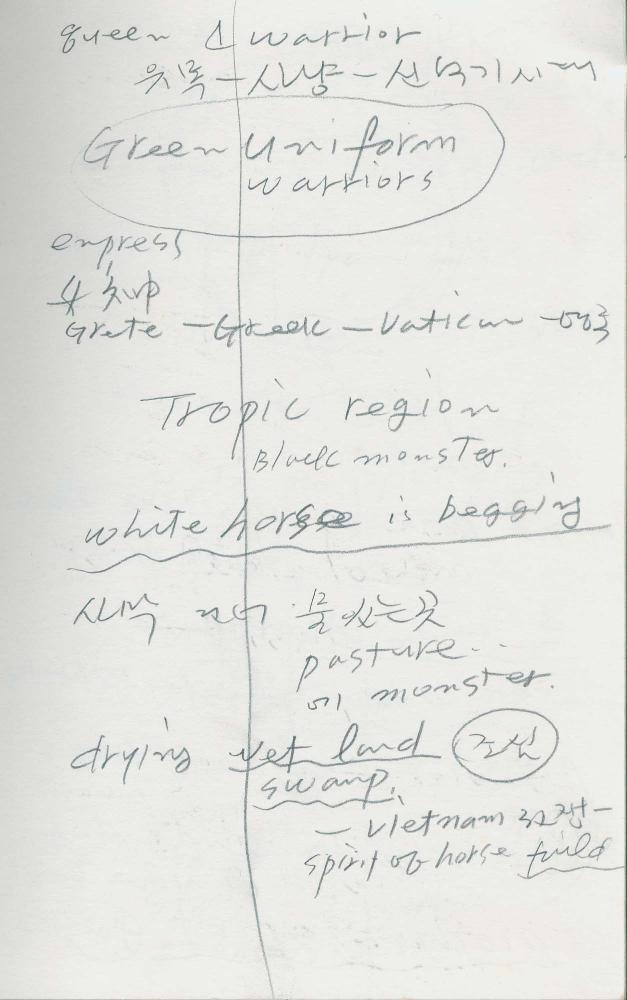 queen 신 warrior
유목 - 사냥 - 신석기시대
Green Uniform
warriors
empress
Grete - Greek - Vatican -
Tropic region
Black monster.
white horse is begging
사막 건너 물있는곳
pasture..
에 monster.
drying wet land 조선
swamp.
- Vietnam 전쟁 -
spirit of horse field